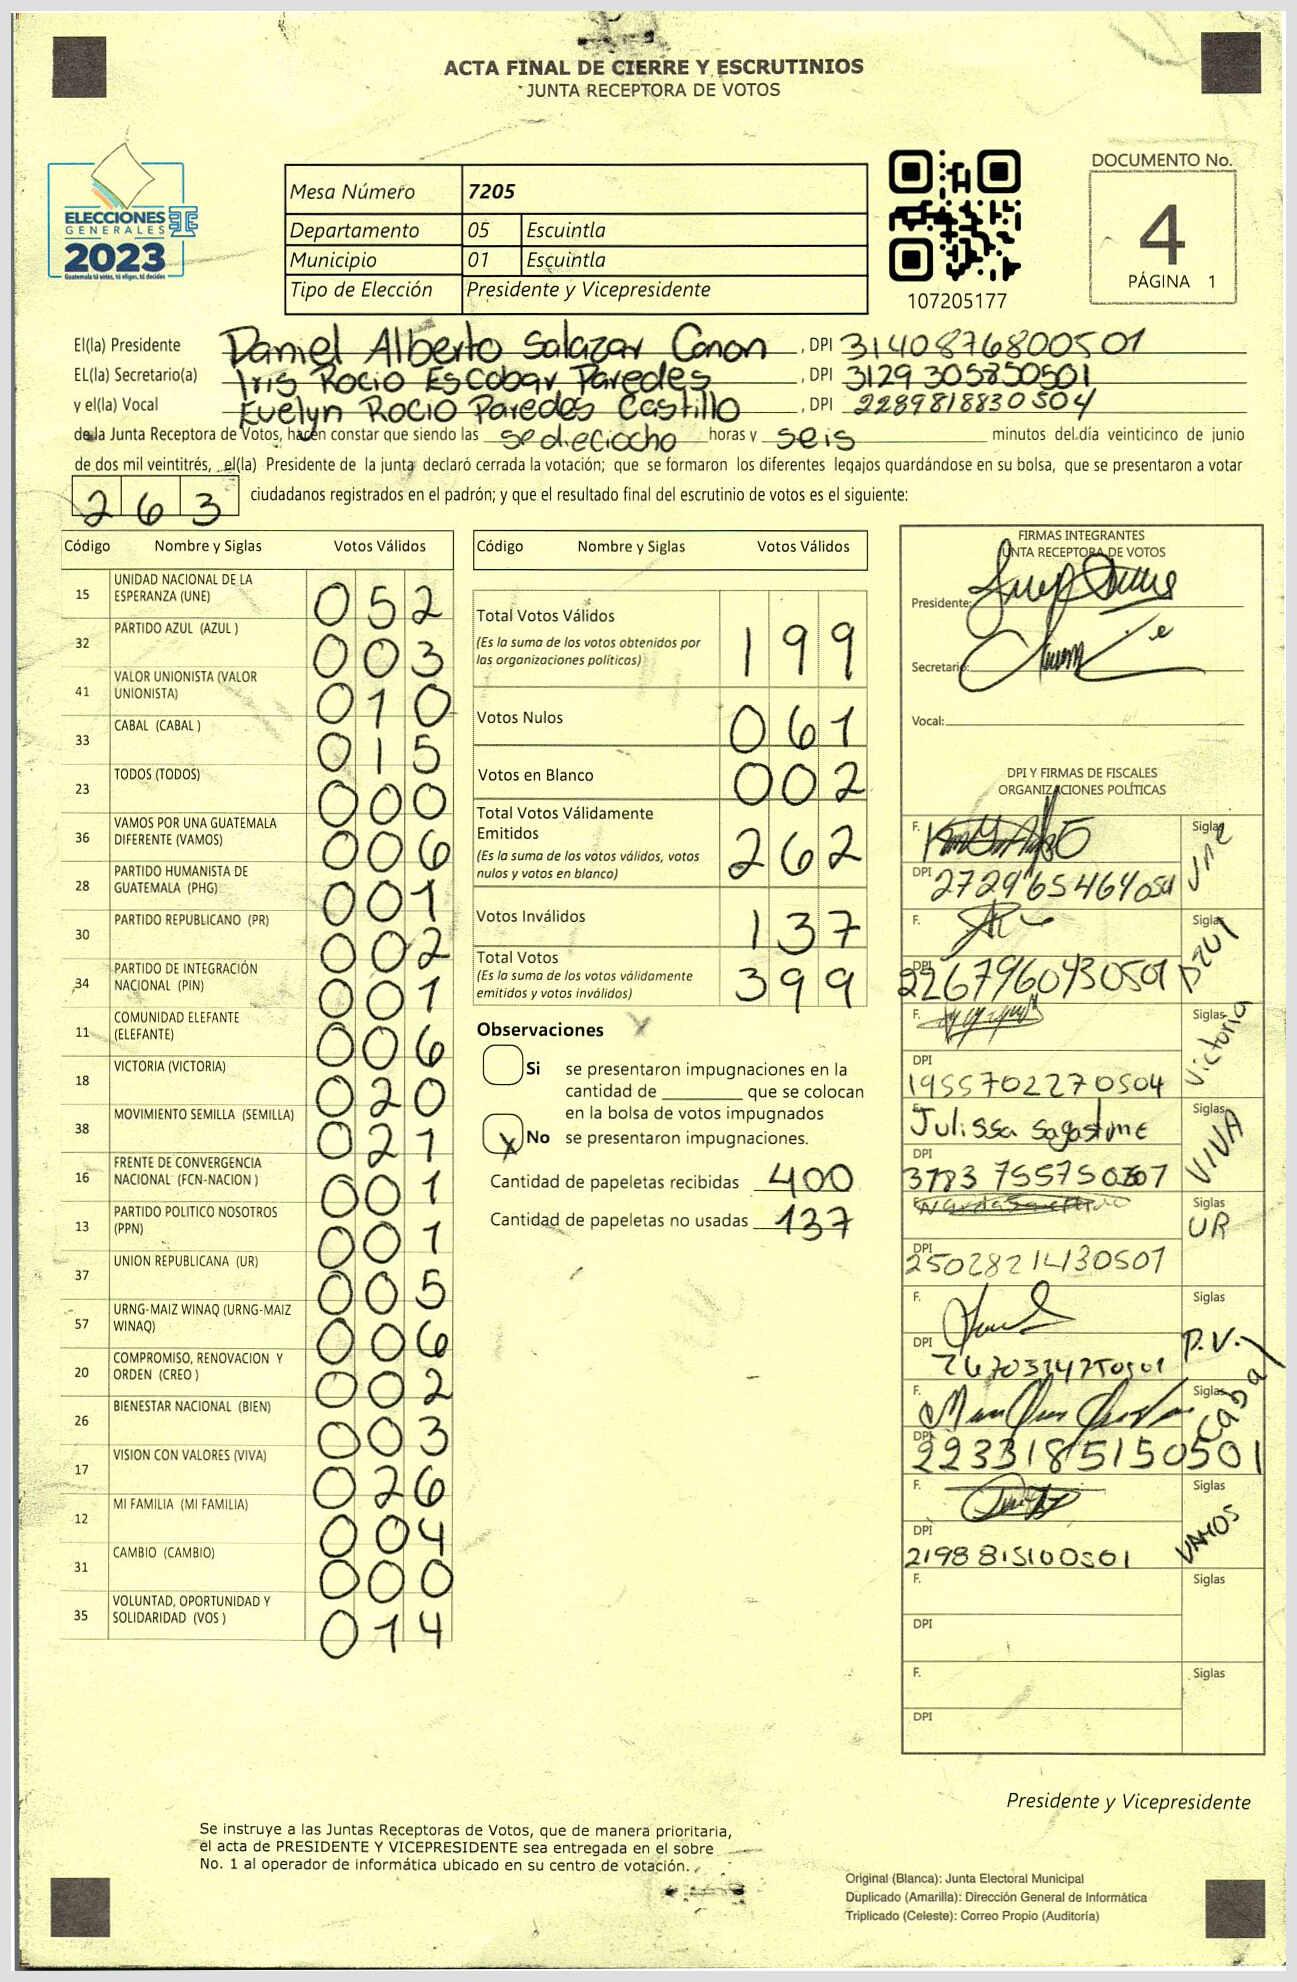 ACTA FINAL DE CIERRE Y ESCRUTINIOS
JUNTA RECEPTORA DE VOTOS
ELECCIONES
GENERALES
2023
Guatemala tú votas, tú eliges, tú decides
Mesa Número 7205
Departamento 05 Escuintla
Municipio 01 Escuintla
Tipo de Elección Presidente y Vicepresidente
107205177
DOCUMENTO No.
4
PÁGINA 1
El(la) Presidente Daniel Alberto Salazar Canon, DPI 3140876800501
EL(la) Secretario(a) Iris Rocio Escobar Paredes, DPI 3129305850501
y el(la) Vocal Evelyn Rocio Paredes Castillo, DPI 2289818830504
de la Junta Receptora de Votos, hacen constar que siendo las dieciocho horas y seis minutos del día veinticinco de junio
de dos mil veintitrés, el(la) Presidente de la junta declaró cerrada la votación; que se formaron los diferentes legajos guardándose en su bolsa, que se presentaron a votar
263 ciudadanos registrados en el padrón; y que el resultado final del escrutinio de votos es el siguiente:
Código Nombre y Siglas Votos Válidos
15 UNIDAD NACIONAL DE LA ESPERANZA (UNE) 052
32 PARTIDO AZUL (AZUL ) 003
41 VALOR UNIONISTA (VALOR UNIONISTA) 010
33 CABAL (CABAL ) 015
23 TODOS (TODOS) 000
36 VAMOS POR UNA GUATEMALA DIFERENTE (VAMOS) 006
28 PARTIDO HUMANISTA DE GUATEMALA (PHG) 001
30 PARTIDO REPUBLICANO (PR) 002
34 PARTIDO DE INTEGRACIÓN NACIONAL (PIN) 001
11 COMUNIDAD ELEFANTE (ELEFANTE) 006
18 VICTORIA (VICTORIA) 020
38 MOVIMIENTO SEMILLA (SEMILLA) 021
16 FRENTE DE CONVERGENCIA NACIONAL (FCN-NACION ) 001
13 PARTIDO POLITICO NOSOTROS (PPN) 001
37 UNION REPUBLICANA (UR) 005
57 URNG-MAIZ WINAQ (URNG-MAIZ WINAQ) 006
20 COMPROMISO, RENOVACION Y ORDEN (CREO ) 002
26 BIENESTAR NACIONAL (BIEN) 003
17 VISION CON VALORES (VIVA) 026
12 MI FAMILIA (MI FAMILIA) 004
31 CAMBIO (CAMBIO) 000
35 VOLUNTAD, OPORTUNIDAD Y SOLIDARIDAD (VOS ) 014
Código Nombre y Siglas Votos Válidos
Total Votos Válidos 199
(Es la suma de los votos obtenidos por
las organizaciones políticas)
Votos Nulos 061
Votos en Blanco 002
Total Votos Válidamente
Emitidos 262
(Es la suma de los votos válidos, votos
nulos y votos en blanco)
Votos Inválidos 137
Total Votos 399
(Es la suma de los votos válidamente
emitidos y votos inválidos)
Observaciones
Si se presentaron impugnaciones en la
cantidad de ________ que se colocan
en la bolsa de votos impugnados
X No se presentaron impugnaciones.
Cantidad de papeletas recibidas 400
Cantidad de papeletas no usadas 137
FIRMAS INTEGRANTES
JUNTA RECEPTORA DE VOTOS
Presidente:
Secretario:
Vocal:
DPI Y FIRMAS DE FISCALES
ORGANIZACIONES POLÍTICAS
F. Siglas
DPI
F. Siglas
DPI 2267960430501
F. Siglas Victoria
DPI 1955702270504
Julissa Sagastume Siglas VIVA
DPI
Siglas UR
DPI
F. Siglas P.V.
DPI
F. Siglas Cabal
DPI 2233185150501
F. Siglas VAMOS
DPI 2198815100501
F. Siglas
DPI
F. Siglas
DPI
Presidente y Vicepresidente
Se instruye a las Juntas Receptoras de Votos, que de manera prioritaria,
el acta de PRESIDENTE Y VICEPRESIDENTE sea entregada en el sobre
No. 1 al operador de informática ubicado en su centro de votación.
Original (Blanca): Junta Electoral Municipal
Duplicado (Amarilla): Dirección General de Informática
Triplicado (Celeste): Correo Propio (Auditoría)